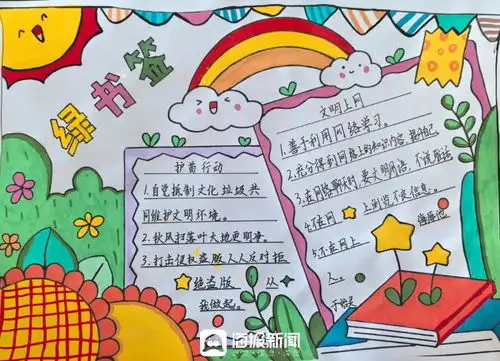 绿书签
护苗行动
1.自觉抵制文化垃圾共
同维护文明环境。
2.秋风扫落叶大地更明净。
3.打击侵权盗版人人反对拒
绝盗版 从
我做起。
文明上网
1.善于利用网络学习。
2.充分得到网络上的知识内容,
3.在网络聊天时,要文明用语,不说
4.不在网 上浏览不良信息。
5.不在网上
人。
海报新闻